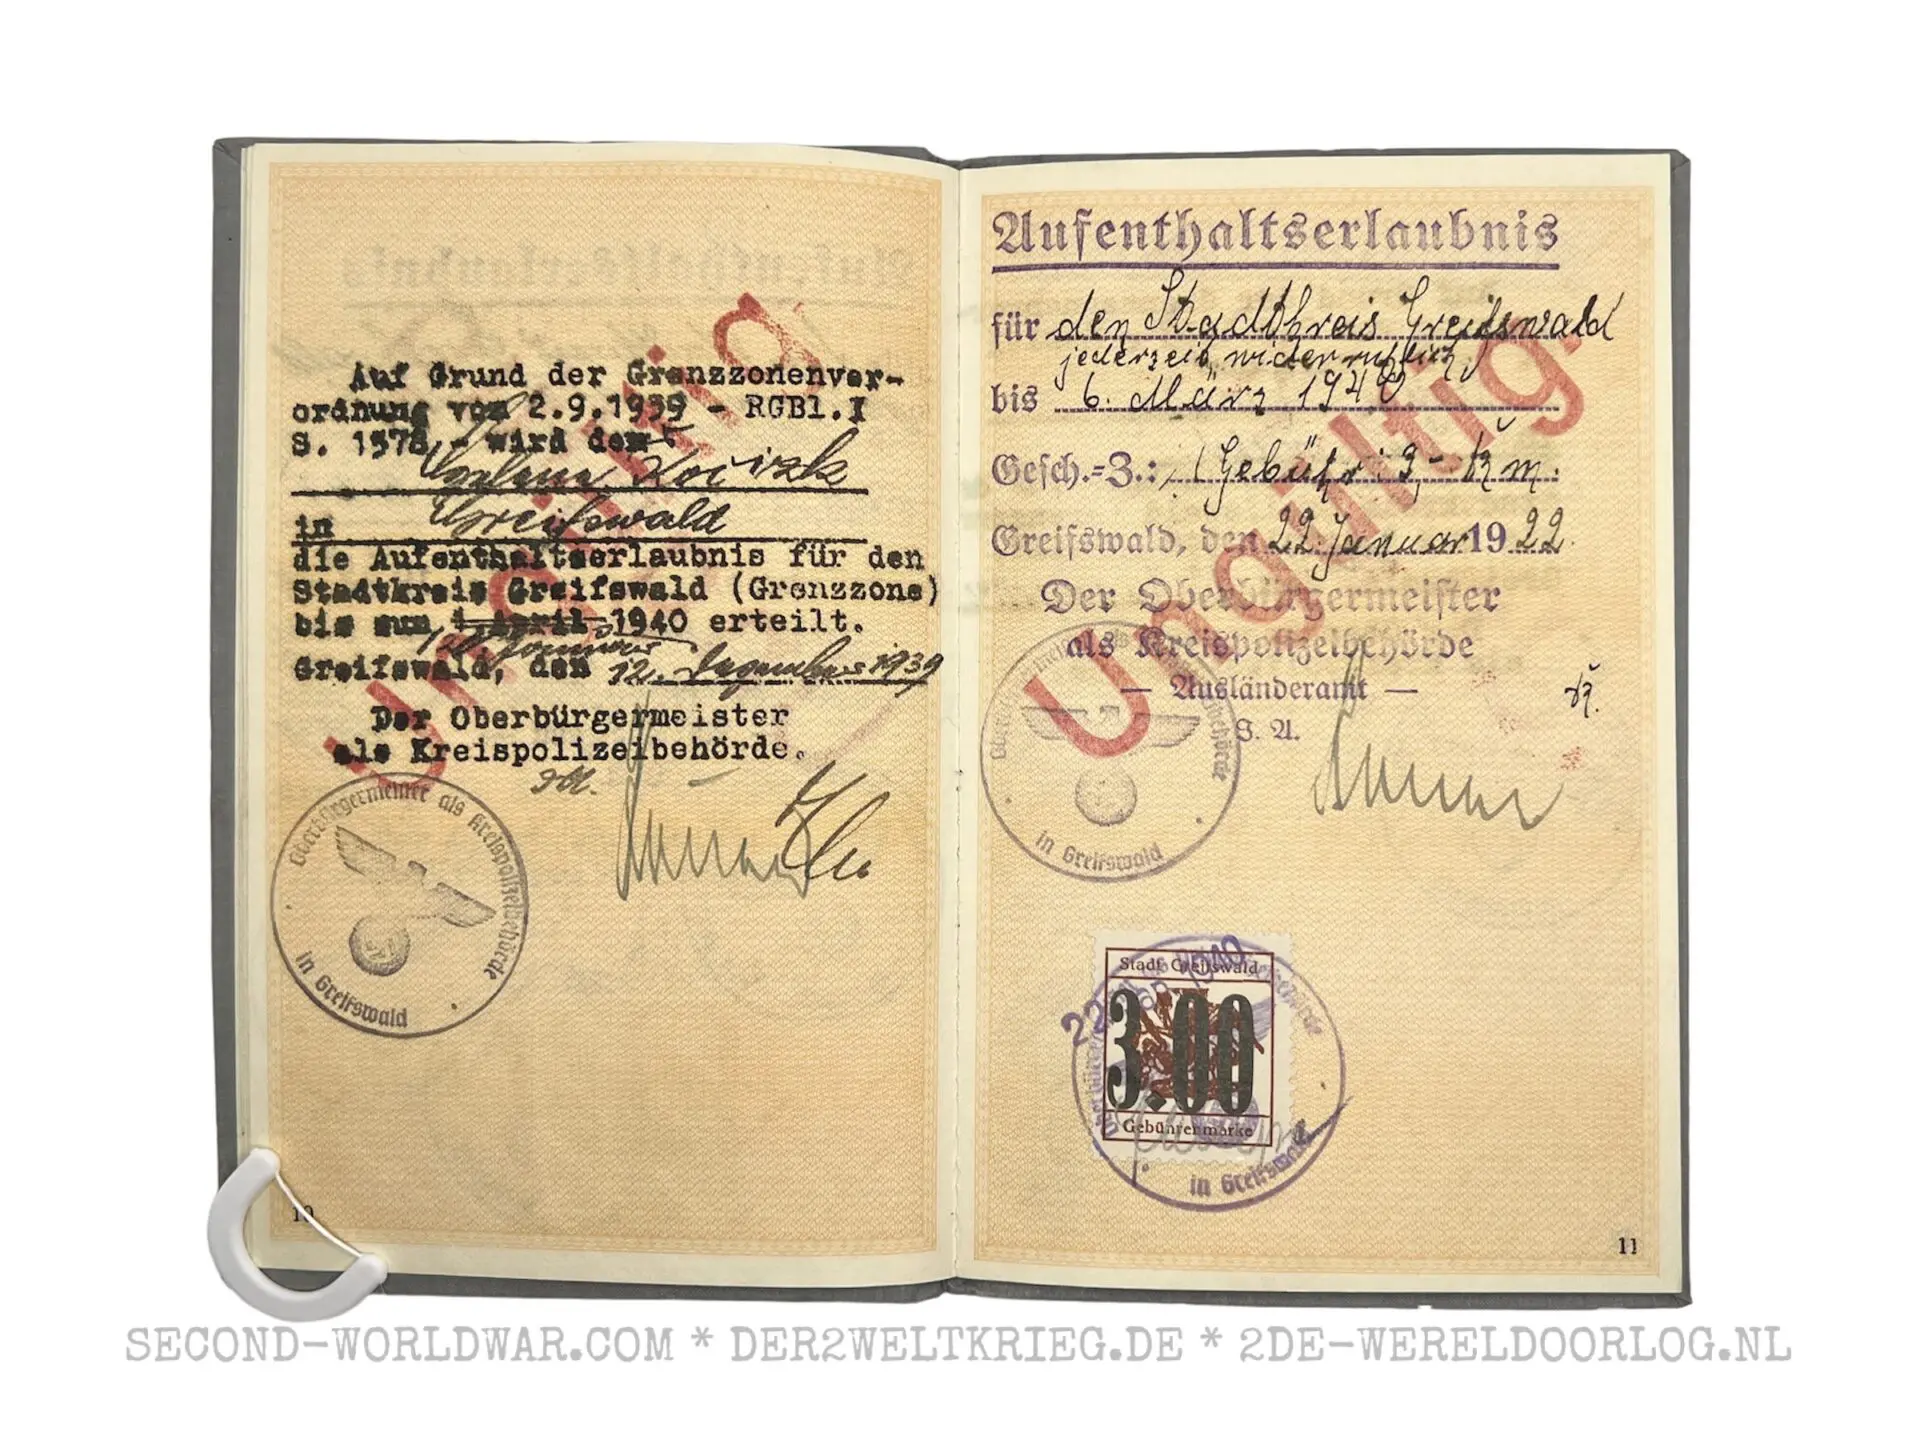 Auf Grund der Grenzzonenver-
ordnung vom 2.9.1939 - RGBl.I
S. 1578 - wird dem
in Greifswald
die Aufenthaltserlaubnis für den
Stadtkreis Greifswald (Grenzzone)
bis zum 1. April 1940 erteilt.
Januar
Greifswald, den 12. Dezember 1939
Der Oberbürgermeister
als Kreispolizeibehörde.
Oberbürgermeister als Kreispolizeibehörde
in Greifswald
Ungültig
10
Aufenthaltserlaubnis
für den Stadtkreis Greifswald
jederzeit widerruflich
bis 6. März 1940
Gesch.=Z.: (Gebühr: 3,- RM.
Greifswald, den 22. Januar 19 22.
Der Oberbürgermeister
als Kreispolizeibehörde
— Ausländeramt —
I. A.
Ungültig.
in Greifswald
Stadt Greifswald
3.00
Gebührenmarke
in Greifswald
11
SECOND-WORLDWAR.COM * DER2WELTKRIEG.DE * 2DE-WERELDOORLOG.NL